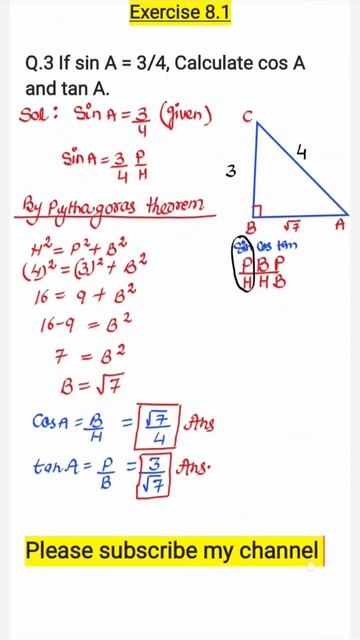 Exercise 8.1
Q.3 If sin A = 3/4, Calculate cos A
and tan A.
Sol: Sin A = 3/4 (given)
Sin A = 3/4 P/H
By Pythagoras theorem
H² = P² + B²
(4)² = (3)² + B²
16 = 9 + B²
16-9 = B²
7 = B²
B = √7
Cos A = B/H = √7/4 Ans
tan A = P/B = 3/√7 Ans.
C
3
4
B
√7
A
Sin Cos tan
P B P
H H B
Please subscribe my channel